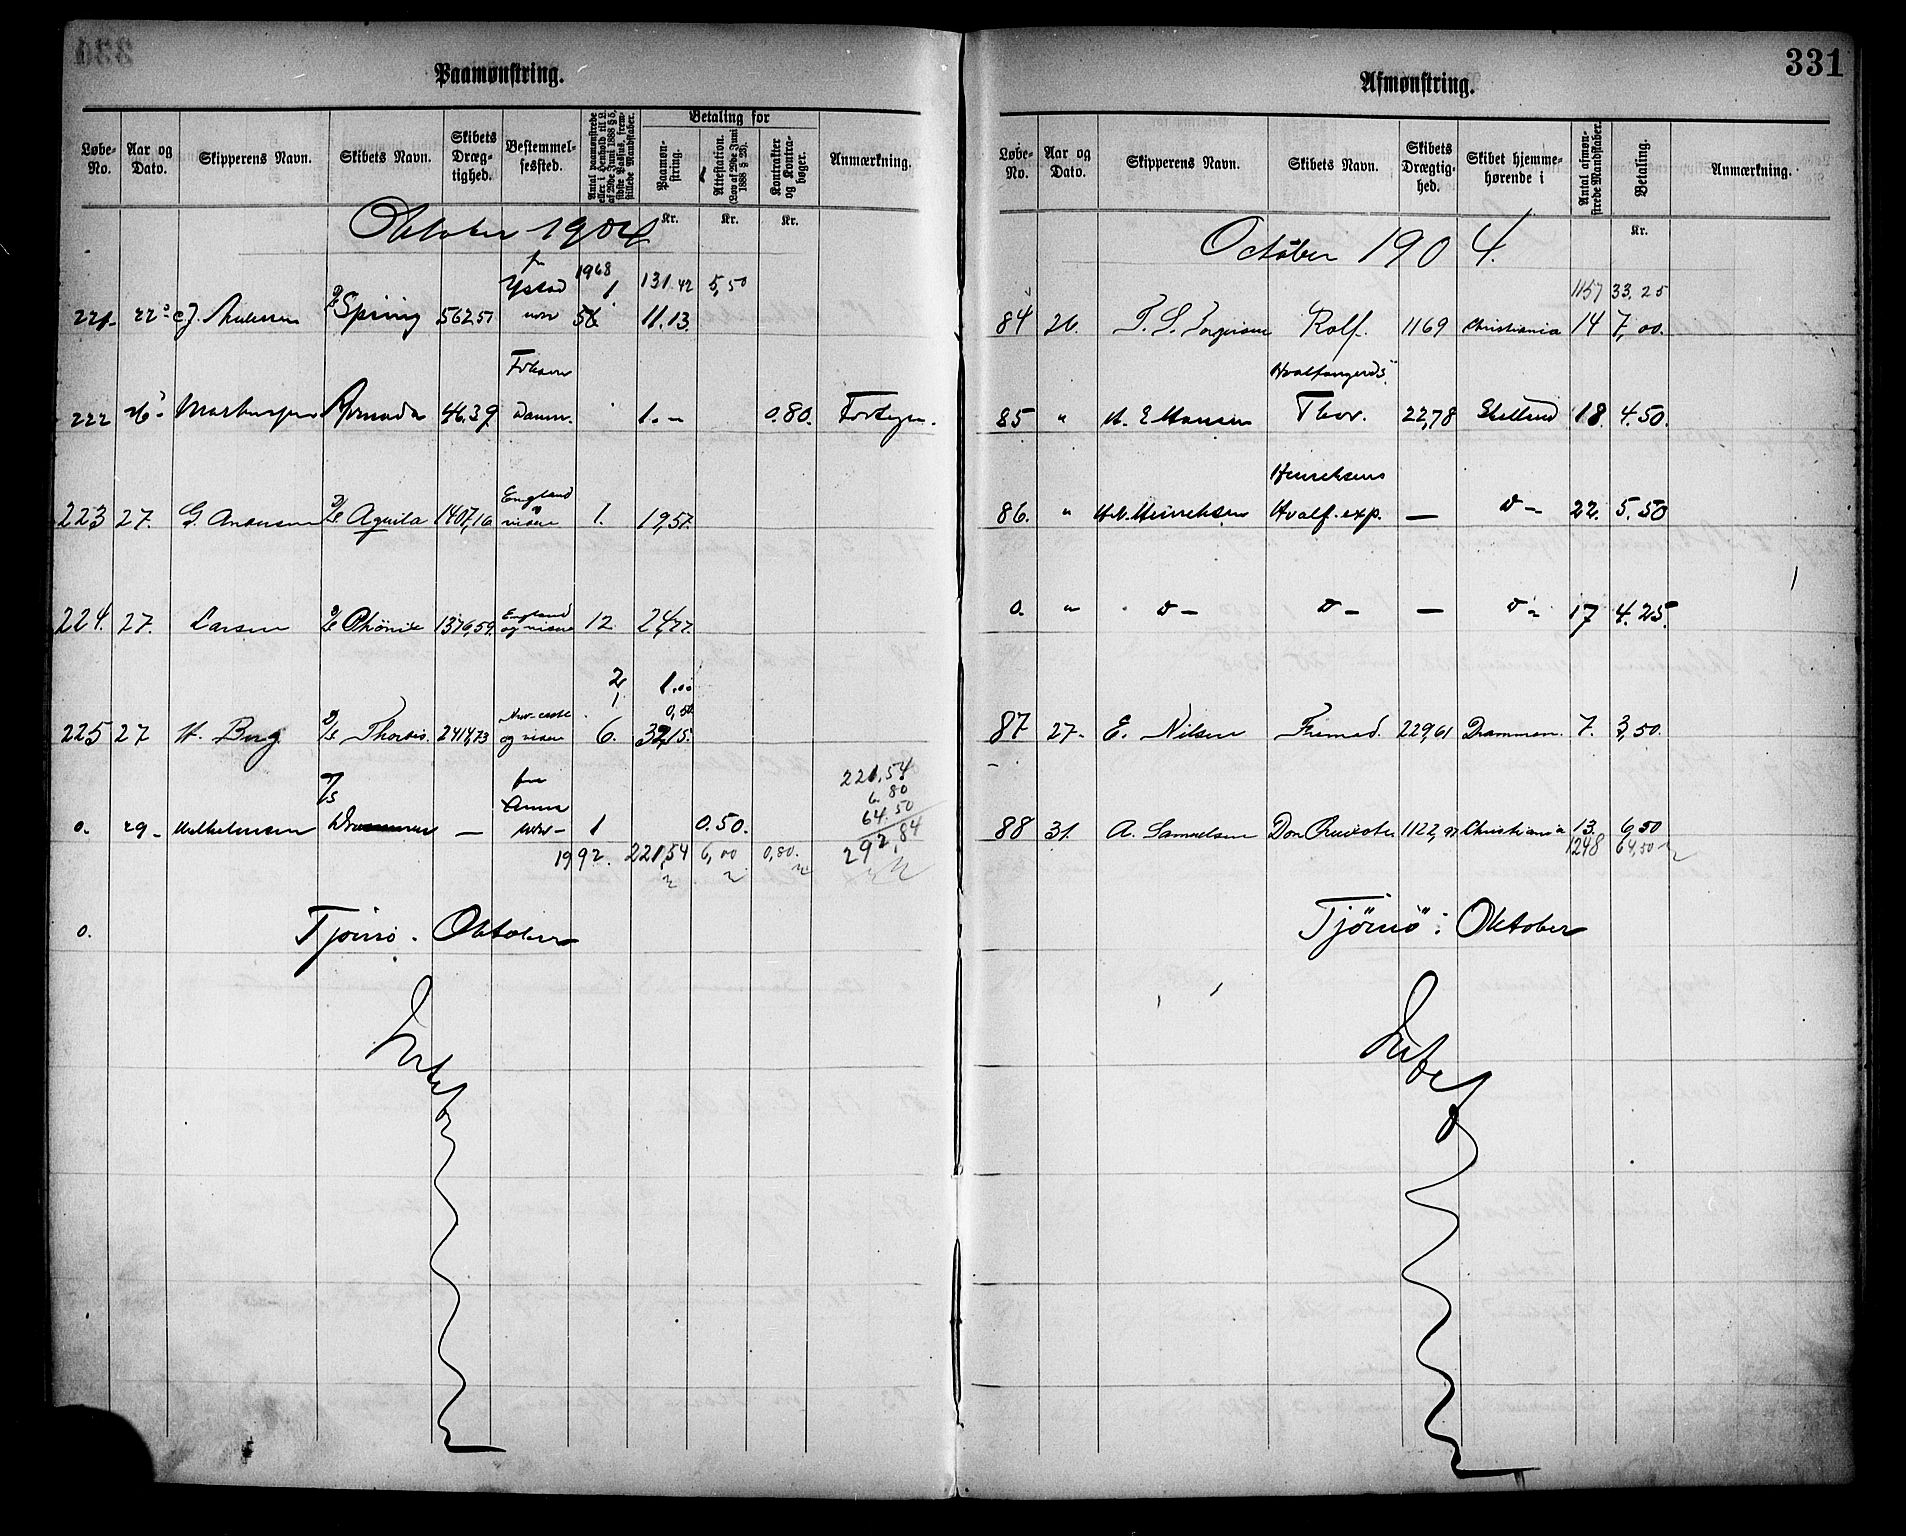 Paamønstring.
Løbe-No. Aar og Dato. Skipperens Navn. Skibets Navn. Skibets Drægtighed. Bestemmelsessted. Antal paamønstrede eller i Henhold til L. af 29de Juni 1888 § 5, sidste Passus, fremstillede Mandskaber. Betaling for Paamønstring. Attestation. (Lov af 29de Juni 1888 § 26). Kontrakter og Kontrabøger. Anmærkning.
Kr. Kr. Kr.
Oktober 1904
1968 131.42 5,50
Ystad 1
221. 22 Spring 562 51 56 11.13.
222 46.39 1.— 0.80.
England
223 27. G. Andersen Aquila 1407,16 1. 19,57.
England
224. 27. Larsen Phönix 1376,59. 12 24,77.
2 1.00
1 0,50
225 27 H. Berg Thordis. 2414,73 6. 32,15.
221,54
6.80
64.50
0. 29 — 1 0.50. 292,84
1992. 221,54 6,00 0,80.
0. Tjømø. Oktober
Intet
331
Afmønstring.
Løbe-No. Aar og Dato. Skipperens Navn. Skibets Navn. Skibets Drægtighed. Skibet hjemmehørende i Antal afmønstrede Mandskaber. Betaling. Anmærkning.
Kr.
October 1904.
1157 33,25
84 26. Rolf. 1169 Christiania 14 7,00.
Hvalfangerds.
85 " Hansen Thor. 22,78 18. 4.50.
Henriksens
86. " Henriksen Hvalf. exp. — D— 22. 5.50
0. " D— D— — D— 17 4.25.
87 27. E. Nilsen Fremad. 229,61 Drammen. 7. 3,50.
88 31. A. Samuelsen Don Quixote 1122,97 Christiania 13. 6,50
1248 64,50
Tjømø: Oktober
Intet